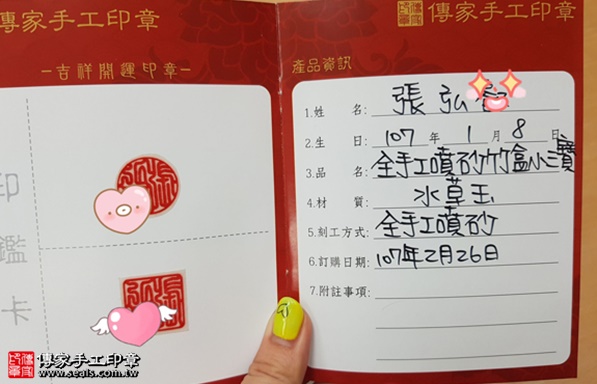 傳家手工印章
－吉祥開運印章－
印鑑卡
傳家手工印章
產品資訊
1.姓 名: 張弘
2.生 日: 107 年 1 月 8 日
3.品 名: 全手工噴砂竹盒小三寶
4.材 質: 水草玉
5.刻工方式: 全手工噴砂
6.訂購日期: 107年2月26日
7.附註事項:
傳家手工印章
www.seals.com.tw